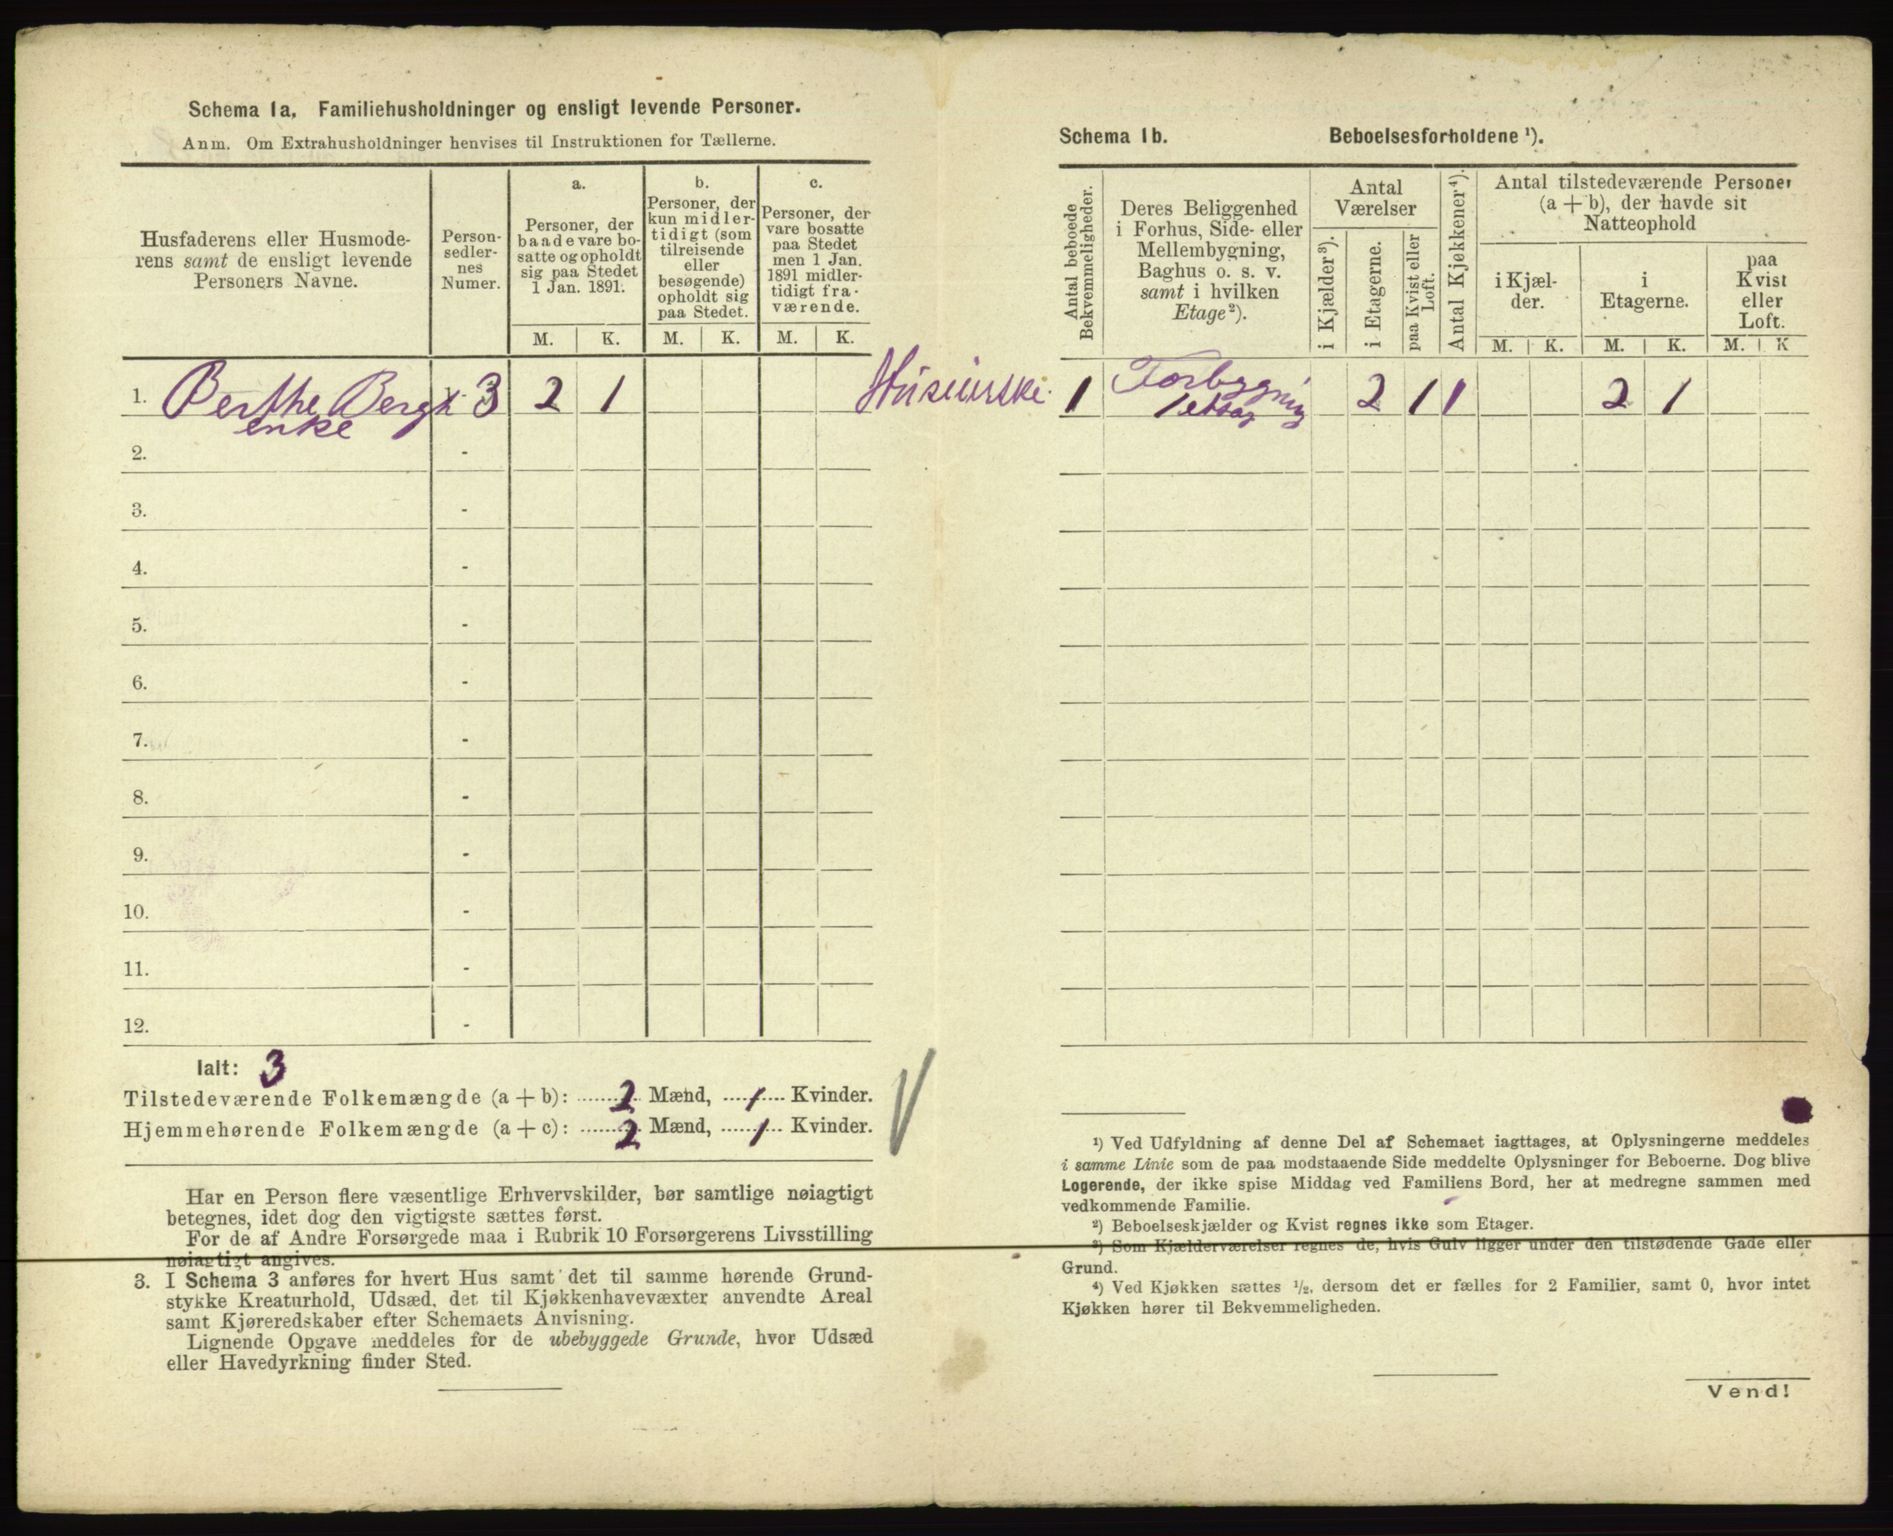 Schema 1a. Familiehusholdninger og ensligt levende Personer.
Anm. Om Extrahusholdninger henvises til Instruktionen for Tællerne.
Husfaderens eller Husmode-
rens samt de ensligt levende
Personers Navne.
Person-
sedler-
nes
Numer.
a.
Personer, der
baade vare bo-
satte og opholdt
sig paa Stedet
1 Jan. 1891.
b.
Personer, der
kun midler-
tidigt (som
tilreisende
eller
besøgende)
opholdt sig
paa Stedet.
c.
Personer, der
vare bosatte
paa Stedet
men 1 Jan.
1891 midler-
tidigt fra-
værende.
M. K. M. K. M. K.
1. Berthe Bergh 3 2 1
enke
2. -
3. -
4. -
5. -
6. -
7. -
8. -
9. -
10. -
11. -
12. -
Ialt: 3
Tilstedeværende Folkemængde (a + b): 2 Mænd, 1 Kvinder.
Hjemmehørende Folkemængde (a + c): 2 Mænd, 1 Kvinder.
Har en Person flere væsentlige Erhvervskilder, bør samtlige nøiagtigt
betegnes, idet dog den vigtigste sættes først.
For de af Andre Forsørgede maa i Rubrik 10 Forsørgerens Livsstilling
nøiagtigt angives.
3. I Schema 3 anføres for hvert Hus samt det til samme hørende Grund-
stykke Kreaturhold, Udsæd, det til Kjøkkenhavevæxter anvendte Areal
samt Kjøreredskaber efter Schemaets Anvisning.
Lignende Opgave meddeles for de ubebyggede Grunde, hvor Udsæd
eller Havedyrkning finder Sted.
Schema 1b. Beboelsesforholdene ¹).
Antal beboede
Bekvemmeligheder.
Deres Beliggenhed
i Forhus, Side- eller
Mellembygning,
Baghus o. s. v.
samt i hvilken
Etage ²).
Antal
Værelser
i Kjælder ³).
i Etagerne.
paa Kvist eller
Loft.
Antal Kjøkkener ⁴).
Antal tilstedeværende Personer
(a + b), der havde sit
Natteophold
i Kjæl-
der.
i
Etagerne.
paa
Kvist
eller
Loft.
M. K. M. K. M. K
1 Forbygning 2 1 1 2 1
1 etage
¹) Ved Udfyldning af denne Del af Schemaet iagttages, at Oplysningerne meddeles
i samme Linie som de paa modstaaende Side meddelte Oplysninger for Beboerne. Dog blive
Logerende, der ikke spise Middag ved Familiens Bord, her at medregne sammen med
vedkommende Familie.
²) Beboelseskjælder og Kvist regnes ikke som Etager.
³) Som Kjælderværelser regnes de, hvis Gulv ligger under den tilstødende Gade eller
Grund.
⁴) Ved Kjøkken sættes ½, dersom det er fælles for 2 Familier, samt 0, hvor intet
Kjøkken hører til Bekvemmeligheden.
Vend!